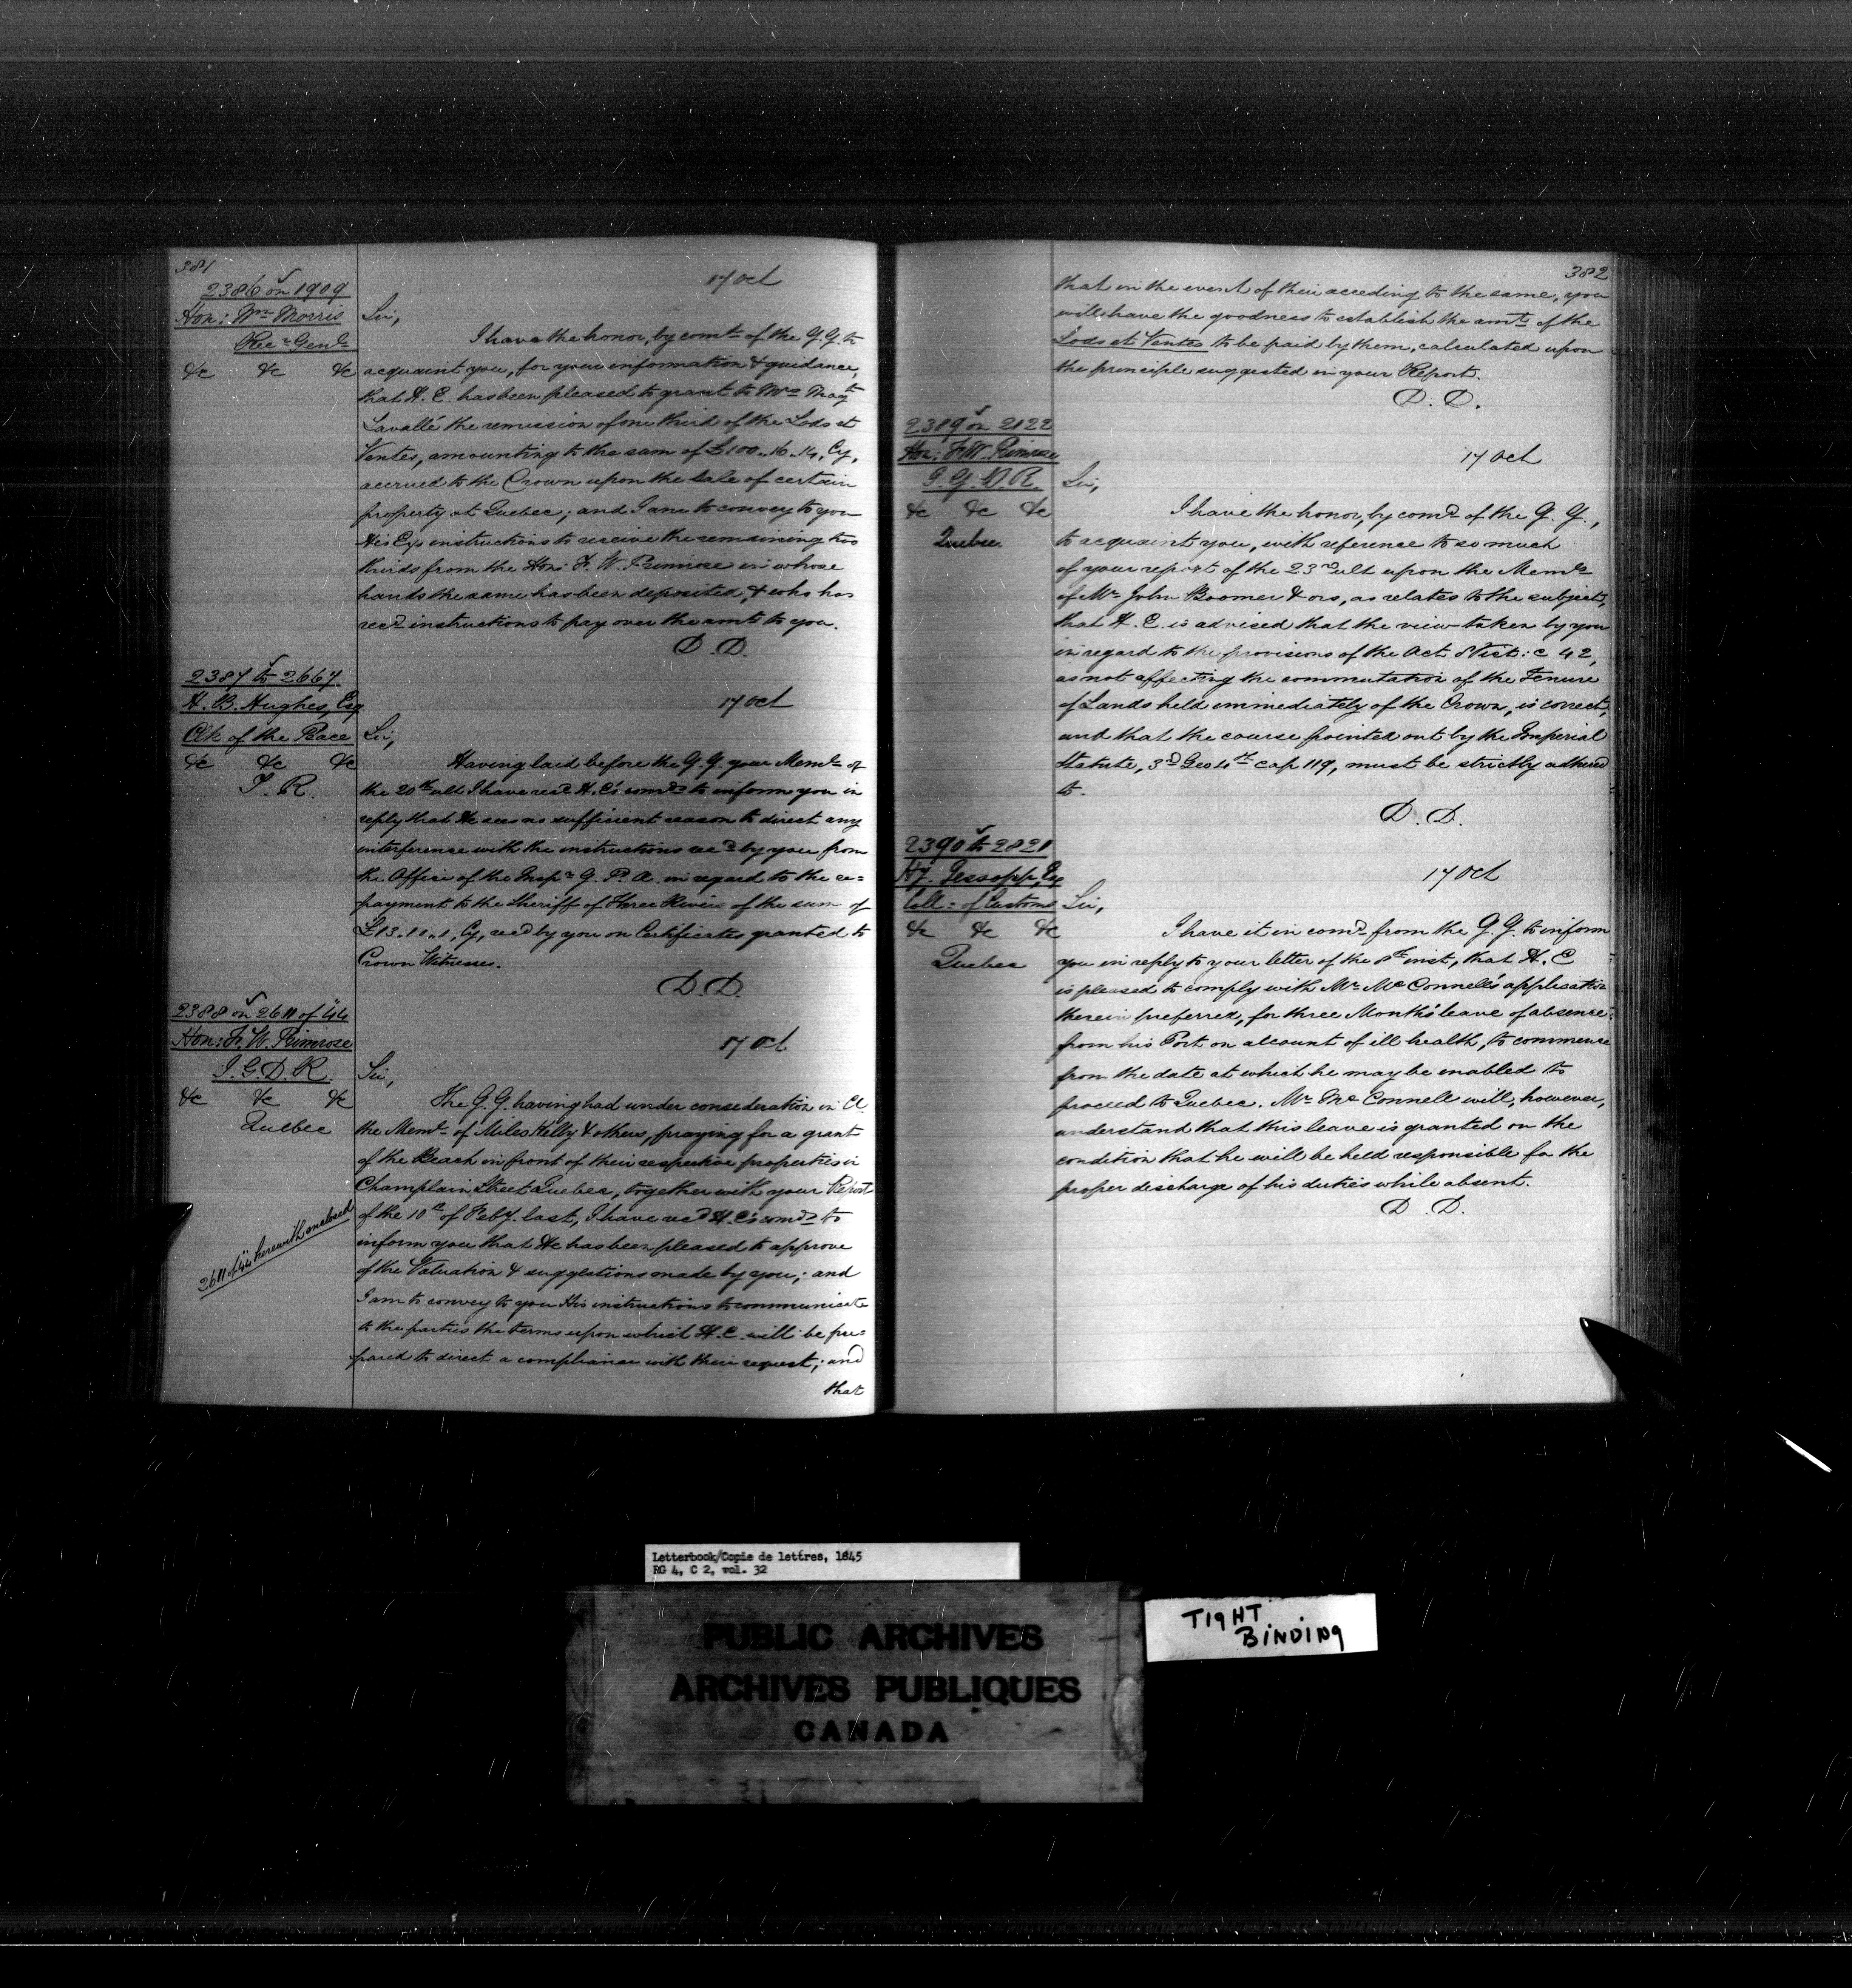 381
2386 on 1909
Hon: Wm Morris
Recr Genl
&c &c &c
17 Oct
Sir,
I have the honor, by comd of the G. G. to
acquaint you, for your information & guidance,
that H. E. has been pleased to grant to Mrs
Lavallé the remission of one third of the Lods et
Ventes, amounting to the sum of £100. 16. , Cy,
accrued to the Crown upon the Sale of certain
property at Quebec; and I am to convey to you
His Ey's instructions to receive the remaining two
thirds from the Hon: F. W. Primrose in whose
hands the same has been deposited, & who has
recd instructions to pay over the amt to you.
D. D.
2387 to 2667
H. B. Hughes, Esq
Clk of the Peace
&c &c &c
T. R.
17 Oct
Sir,
Having laid before the G. G. your Meml of
the 20th ult I have recd H. E's comds to inform you in
reply that He sees no sufficient reason to direct any
interference with the instructions recd by you from
the Office of the Inspr G. P. A. in regard to the re=
payment to the Sheriff of Three Rivers of the sum of
£13. 11. 1, Cy, recd by you on Certificates granted to
Crown Witnesses.
D. D.
2388 on 2611 of '44
Hon: F. W. Primrose
I. G. D. R.
&c &c &c
Quebec
2611 of '44 herewith enclosed
17 Oct
Sir,
The G. G. having had under consideration in Cl
the Meml of Miles Kelly & others, praying for a grant
of the Beach in front of their respective properties in
Champlain Street Quebec, together with your Report
of the 10th of Feby. last, I have recd H. E's comds to
inform you that He has been pleased to approve
of the Valuation & suggestions made by you; and
I am to convey to you His instructions to communicate
to the parties the terms upon which H. E. will be pre=
pared to direct a compliance with their request; and
that
382
that in the event of their acceding to the same, you
will have the goodness to establish the amt of the
Lods et Ventes to be paid by them, calculated upon
the principle suggested in your Report.
D. D.
2389 on 2122
Hon: F. W. Primrose
I. G. D. R.
&c &c &c
Quebec.
17 Oct
Sir,
I have the honor, by comd of the G. G.,
to acquaint you, with reference to so much
of your report of the 23rd ult upon the Meml
of Mr John Boomer & ors, as relates to the subject,
that H. E. is advised that the view taken by you
in regard to the provisions of the Act 8 Vict: c 42,
as not affecting the commutation of the Tenure
of Lands held immediately of the Crown, is correct,
and that the course pointed out by the Imperial
Statute, 3rd Geo 4th cap 119, must be strictly adhered
to.
D. D.
2390 to 2821
Hy. Jessopp, Esq
Coll: of Customs
&c &c &c
Quebec
17 Oct
Sir,
I have it in comd from the G. G. to inform
you in reply to your letter of the 8th inst, that H. E
is pleased to comply with Mr McConnell's application
therein preferred, for three Months' leave of absence
from his Port on account of ill health, to commence
from the date at which he may be enabled to
proceed to Quebec. Mr McConnell will, however,
understand that this leave is granted on the
condition that he will be held responsible for the
proper discharge of his duties while absent.
D. D.
Letterbook/Copie de lettres, 1845
RG 4, C 2, vol. 32
PUBLIC ARCHIVES
ARCHIVES PUBLIQUES
CANADA
TIGHT
BINDING